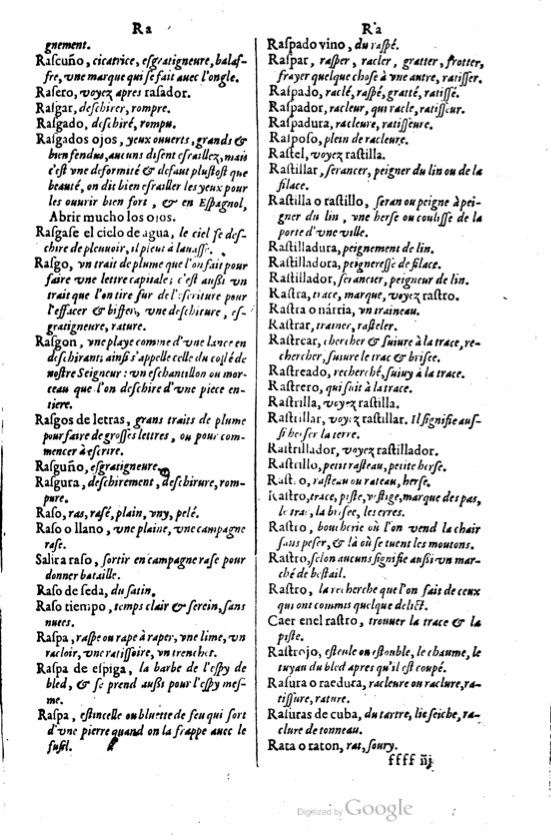 Ra
gnement.
Raſcuño, cicatrice, eſgratigneure, balaf-
fre, vne marque qui ſe fait auec l'ongle.
Raſero, voyez apres raſador.
Raſgar, deſchirer, rompre.
Raſgado, deſchiré, rompu.
Raſgados ojos, yeux ouuerts, grands &
bien fendus, aucuns diſent eſraillez, mais
c'eſt vne deformité & defaut pluſtoſt que
beauté, on dit bien eſrailler les yeux pour
les ouurir bien fort, & en Eſpagnol,
Abrir mucho los ojos.
Raſgaſe el cielo de agua, le ciel ſe deſ-
chire de pleuuoir, il pleut à lanaſſe.
Raſgo, vn trait de plume que l'on fait pour
faire vne lettre capitale; c'eſt auſsi vn
trait que l'on tire ſur de l'eſcriture pour
l'effacer & biffer, vne deſchiure, eſ-
gratigneure, rature.
Raſgon, vne playe comme d'vne lance en
deſchirant; ainſi s'appelle celle du coſté de
noſtre Seigneur: vn eſchantillon ou mor-
ceau que l'on deſchire d'vne piece en-
tiere.
Raſgos de letras, grans traits de plume
pour faire de groſſes lettres, ou pour com-
mencer à eſcrire.
Raſguño, eſgratigneure.
Raſgura, deſchirement, deſchirure, rom-
pure.
Raſo, ras, raſé, plain, vny, pelé.
Raſo o llano, vne plaine, vne campagne
raſe.
Salir a raſo, ſortir en campagne raſe pour
donner bataille.
Raſo de ſeda, du ſatin.
Raſo tiempo, temps clair & ſerein, ſans
nuees.
Raſpa, raſpe ou rape à raper, vne lime, vn
racloir, vne ratiſſoire, vn trenchet.
Raſpa de eſpiga, la barbe de l'eſpy de
bled, & ſe prend auſsi pour l'eſpy meſ-
me.
Raſpa, eſtincelle ou bluette de feu qui ſort
d'vne pierre quand on la frappe auec le
fuſil.
Ra
Raſpado vino, du raſpé.
Raſpar, raſper, racler, gratter, frotter,
frayer quelque choſe à vne autre, ratiſſer.
Raſpado, raclé, raſpé, gratté, ratiſſé.
Raſpador, racleur, qui racle, ratiſſeur.
Raſpadura, racleure, ratiſſeure.
Raſpoſo, plein de racleure.
Raſtel, voyez raſtilla.
Raſtillar, ſerancer, peigner du lin ou de la
filace.
Raſtilla o raſtillo, ſeran ou peigne à pei-
gner du lin, vne herſe ou couliſſe de la
porte d'vne ville.
Raſtilladura, peignement de lin.
Raſtilladora, peignereſſe de filace.
Raſtillador, ſerancier, peigneur de lin.
Raſtra, trace, marque, voyez raſtro.
Raſtra o nárria, vn traineau.
Raſtrar, trainer, raſteler.
Raſtrear, chercher & ſuiure à la trace, re-
chercher, ſuiure le trac & briſee.
Raſtreado, recherché, ſuiuy à la trace.
Raſtrero, qui ſuit à la trace.
Raſtrilla, voyez raſtilla.
Raſtrillar, voyez raſtillar. Il ſignifie auſ-
ſi herſer la terre.
Raſtrillador, voyez raſtillador.
Raſtrillo, petit raſteau, petite herſe.
Raſtro, raſteau ou rateau, herſe.
Raſtro, trace, piſte, veſtige, marque des pas,
le trac, la briſee, les erres.
Raſtro, boucherie où l'on vend la chair
ſans peſer, & là où ſe tuent les moutons.
Raſtro, ſelon aucuns ſignifie auſsi vn mar-
ché de beſtail.
Raſtro, la recherche que l'on fait de ceux
qui ont commis quelque delict.
Caer en el raſtro, trouuer la trace & la
piſte.
Raſtrojo, eſteule ou eſtouble, le chaume, le
tuyau du bled apres qu'il eſt coupé.
Raſura o raedura, racleure ou raclure, ra-
tiſſure, rature.
Raſuras de cuba, du tartre, lie ſeiche, ra-
clure de tonneau.
Rata o raton, rat, ſoury.
ffff iij
Digitized by Google